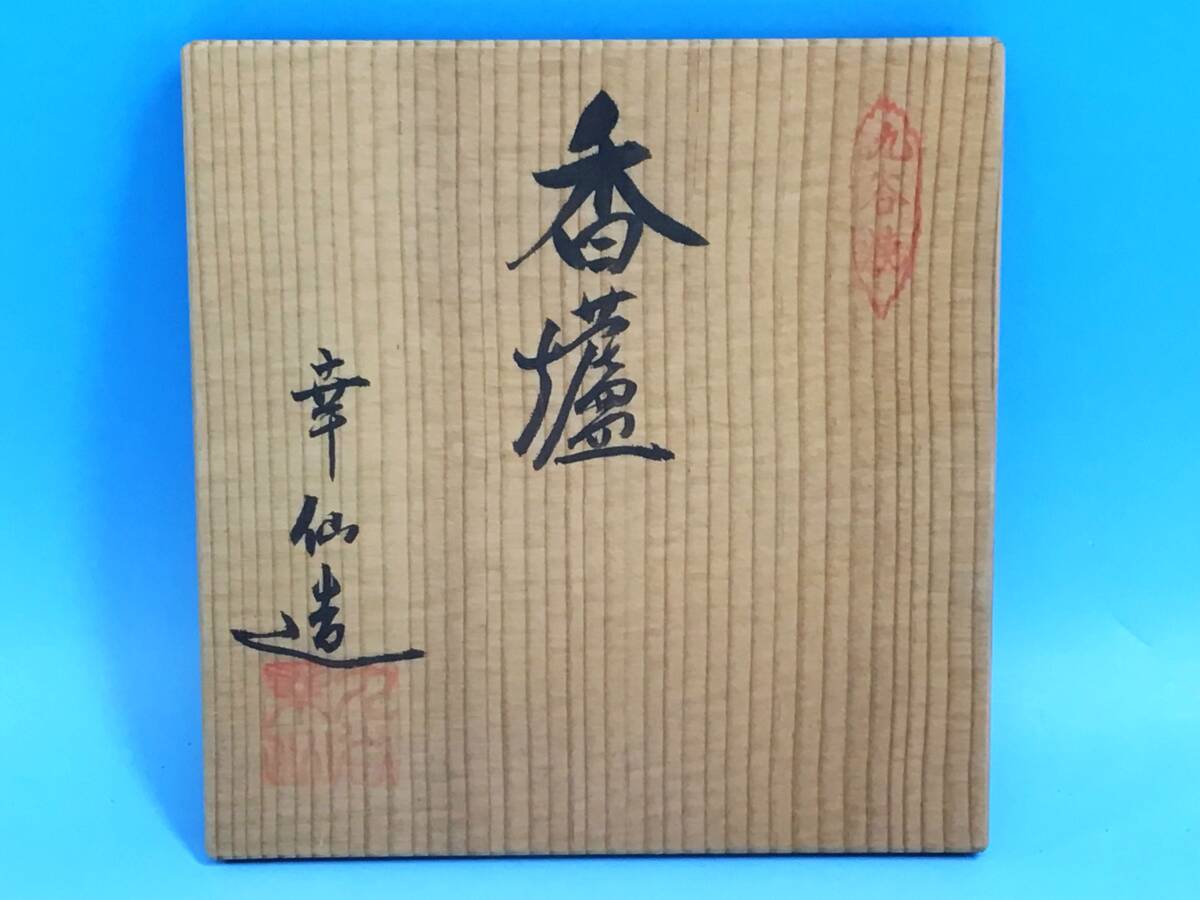 九谷焼
香爐
幸仙造